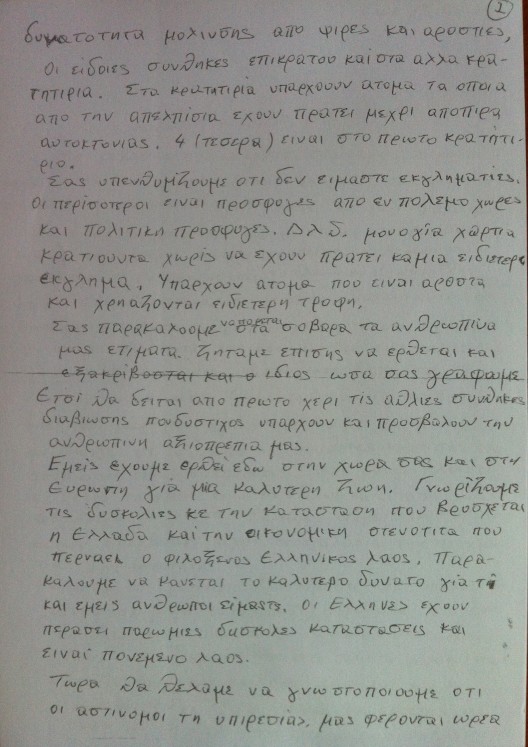 2
δυνατοτητα μολινσης απο φιρες και αροστιες,
Οι ειδοιες συνθηκες επικρατου και στα αλλα κρα-
τητιρια. Στα κρατητιρια υπαρχουν ατομα τα οποια
απο την απελπισια εχουν πρατει μεχρι αποπιρα
αυτοκτονιας. 4 (τεσερα) ειναι στο πρωτο κρατητι-
ριο.
Σας υπενθυμιζουμε οτι δεν ειμαστε εκγληματιες.
Οι περισοτεροι ειναι προσφυγες απο εν πολεμο χωρες
και πολιτικη προσφυγες. Δλδ. μονο για χαρτια
κρατιουντα χωρις να εχουν πρατει καμια ειδιετερο
εκγλημα. Υπαρχουν ατομα που ειναι αροστα
και χρηαζονται ειδιετερη τροφη.
Σας παρακαλουμε να παρεται στα σοβαρα τα ανθρωπινα
μας ετιματα. Ζηταμε επισης να ερθεται και
εξακριβοσται και ο ιδιος ωσα σας γραφουμε
Ετσι θα δειται απο πρωτο χερι τις αθλιες συνθηκες
διαβιωσης που δυστιχος υπαρχουν και προσβαλουν την
ανθρωπινη αξιοπρεπια μας.
Εμεις εχουμε ερθει εδω στην χωρα σας και στην
Ευρωπη για μια καλυτερη ζωη. Γνωριζουμε
τις δυσκολιες κε την κατασταση που βρυσχεται
η Ελλαδα και την οικονομικη στενοτιτα που
περναει ο φιλοξενος Ελληνικος λαος. Παρα-
καλουμε να κανεται το καλυτερο δυνατο για τι
και εμεις ανθρωποι ειμαστε. Οι Ελληνες εχουν
περασει παρωμιες δισκολες καταστασεις και
ειναι πονεμενο λαος.
Τωρα θα θελαμε να γνωστοποιουμε οτι
οι αστινομοι τη υπιρεσιας, μας φερονται ωρεα